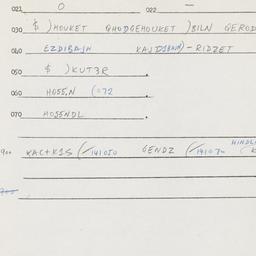 021 O 022 —
030 $ )HOUKET GHODGEHOUKET )BILN GEROD
040 EZDIBAJH KAJ - RIDZET
050 $ )KUT3R
060 HOSS,N (=72
070 HOSSNDL
900 KAC+K1S (/141050 GENDZ (/141070 HINDL